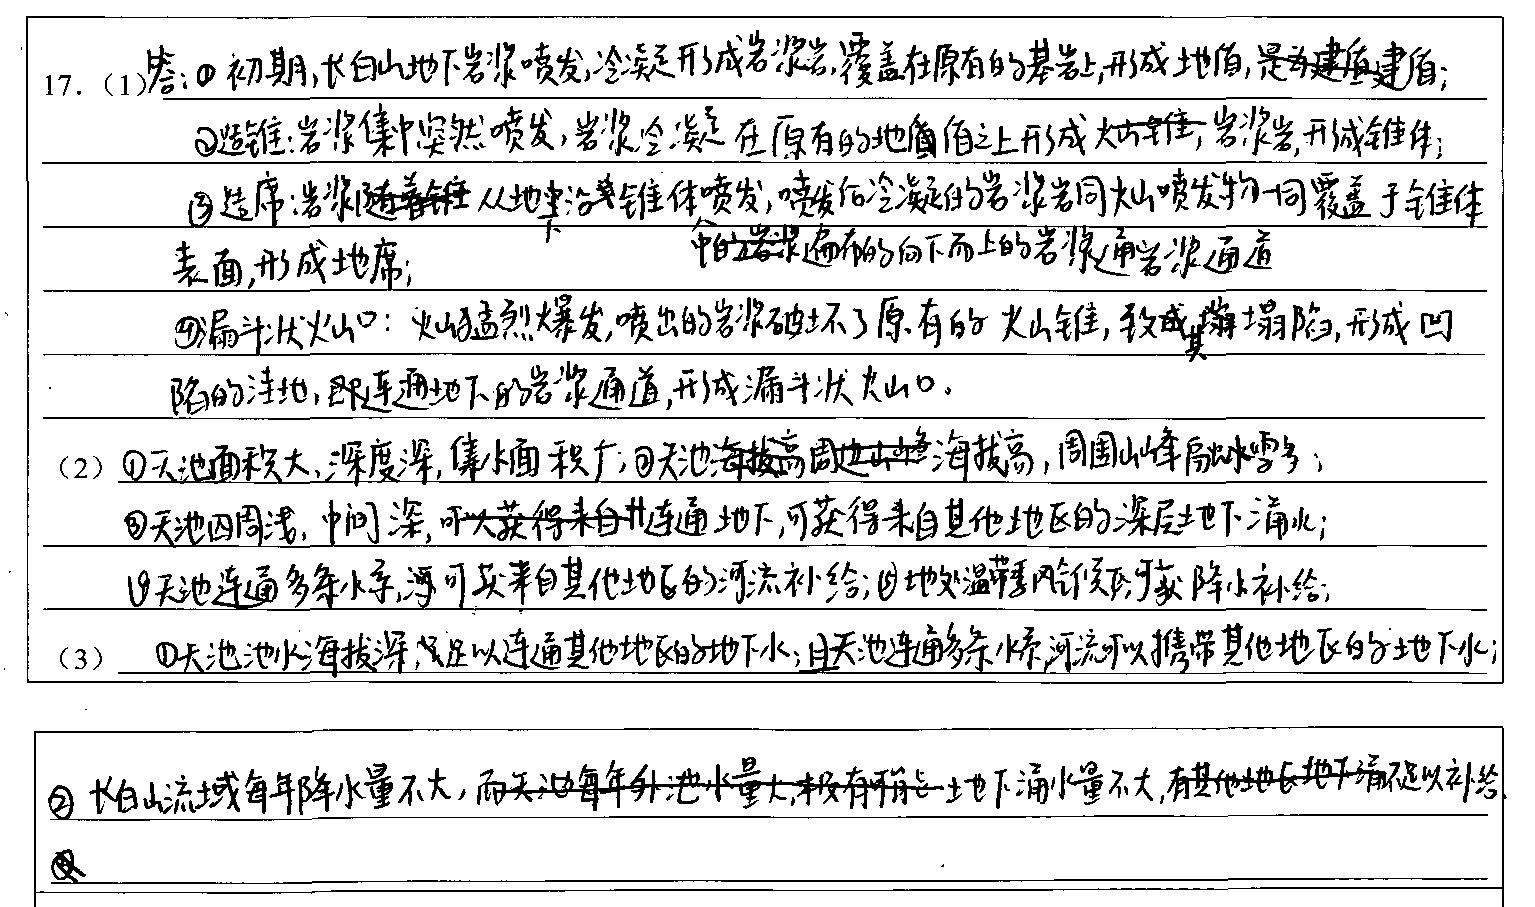 17.（1）答:①初期,长白山地下岩浆喷发,冷凝形成岩浆岩,覆盖在原有的基岩上,形成地盾,是为建盾建盾;
②造锥:岩浆集中突然喷发,岩浆冷凝在原有的地盾之上形成火山锥,岩浆岩,形成锥体;
③造席:岩浆随着锥从地下沿着锥体喷发,喷发后冷凝的岩浆岩同火山喷发物一同覆盖于锥体
表面,形成地席;
中的岩浆遍布的向下而上的岩浆通岩浆通道
④漏斗状火山口:火山猛烈爆发,喷出的岩浆破坏了原有的火山锥,致成其塌陷,形成凹
陷的洼地,即连通地下的岩浆通道,形成漏斗状火山口。
（2）①天池面积大,深度深,集水面积广;②天池海拔高周边山峰海拔高,周围山峰冰雪多;
③天池四周浅,中间深,可以获得来自连通地下,可获得来自其他地区的深层地下涌水;
④天池连通多条水系,可获来自其他地区的河流补给;⑤地处温带季风气候区,可获降水补给;
（3）①天池池水海拔深,足以连通其他地区的地下水;且天池连通多条水系,河流可以携带其他地区的地下水;
②长白山流域每年降水量不大,而天池每年外池水量大,地下涌水量不大,有其他地区地下涌不足以补给.